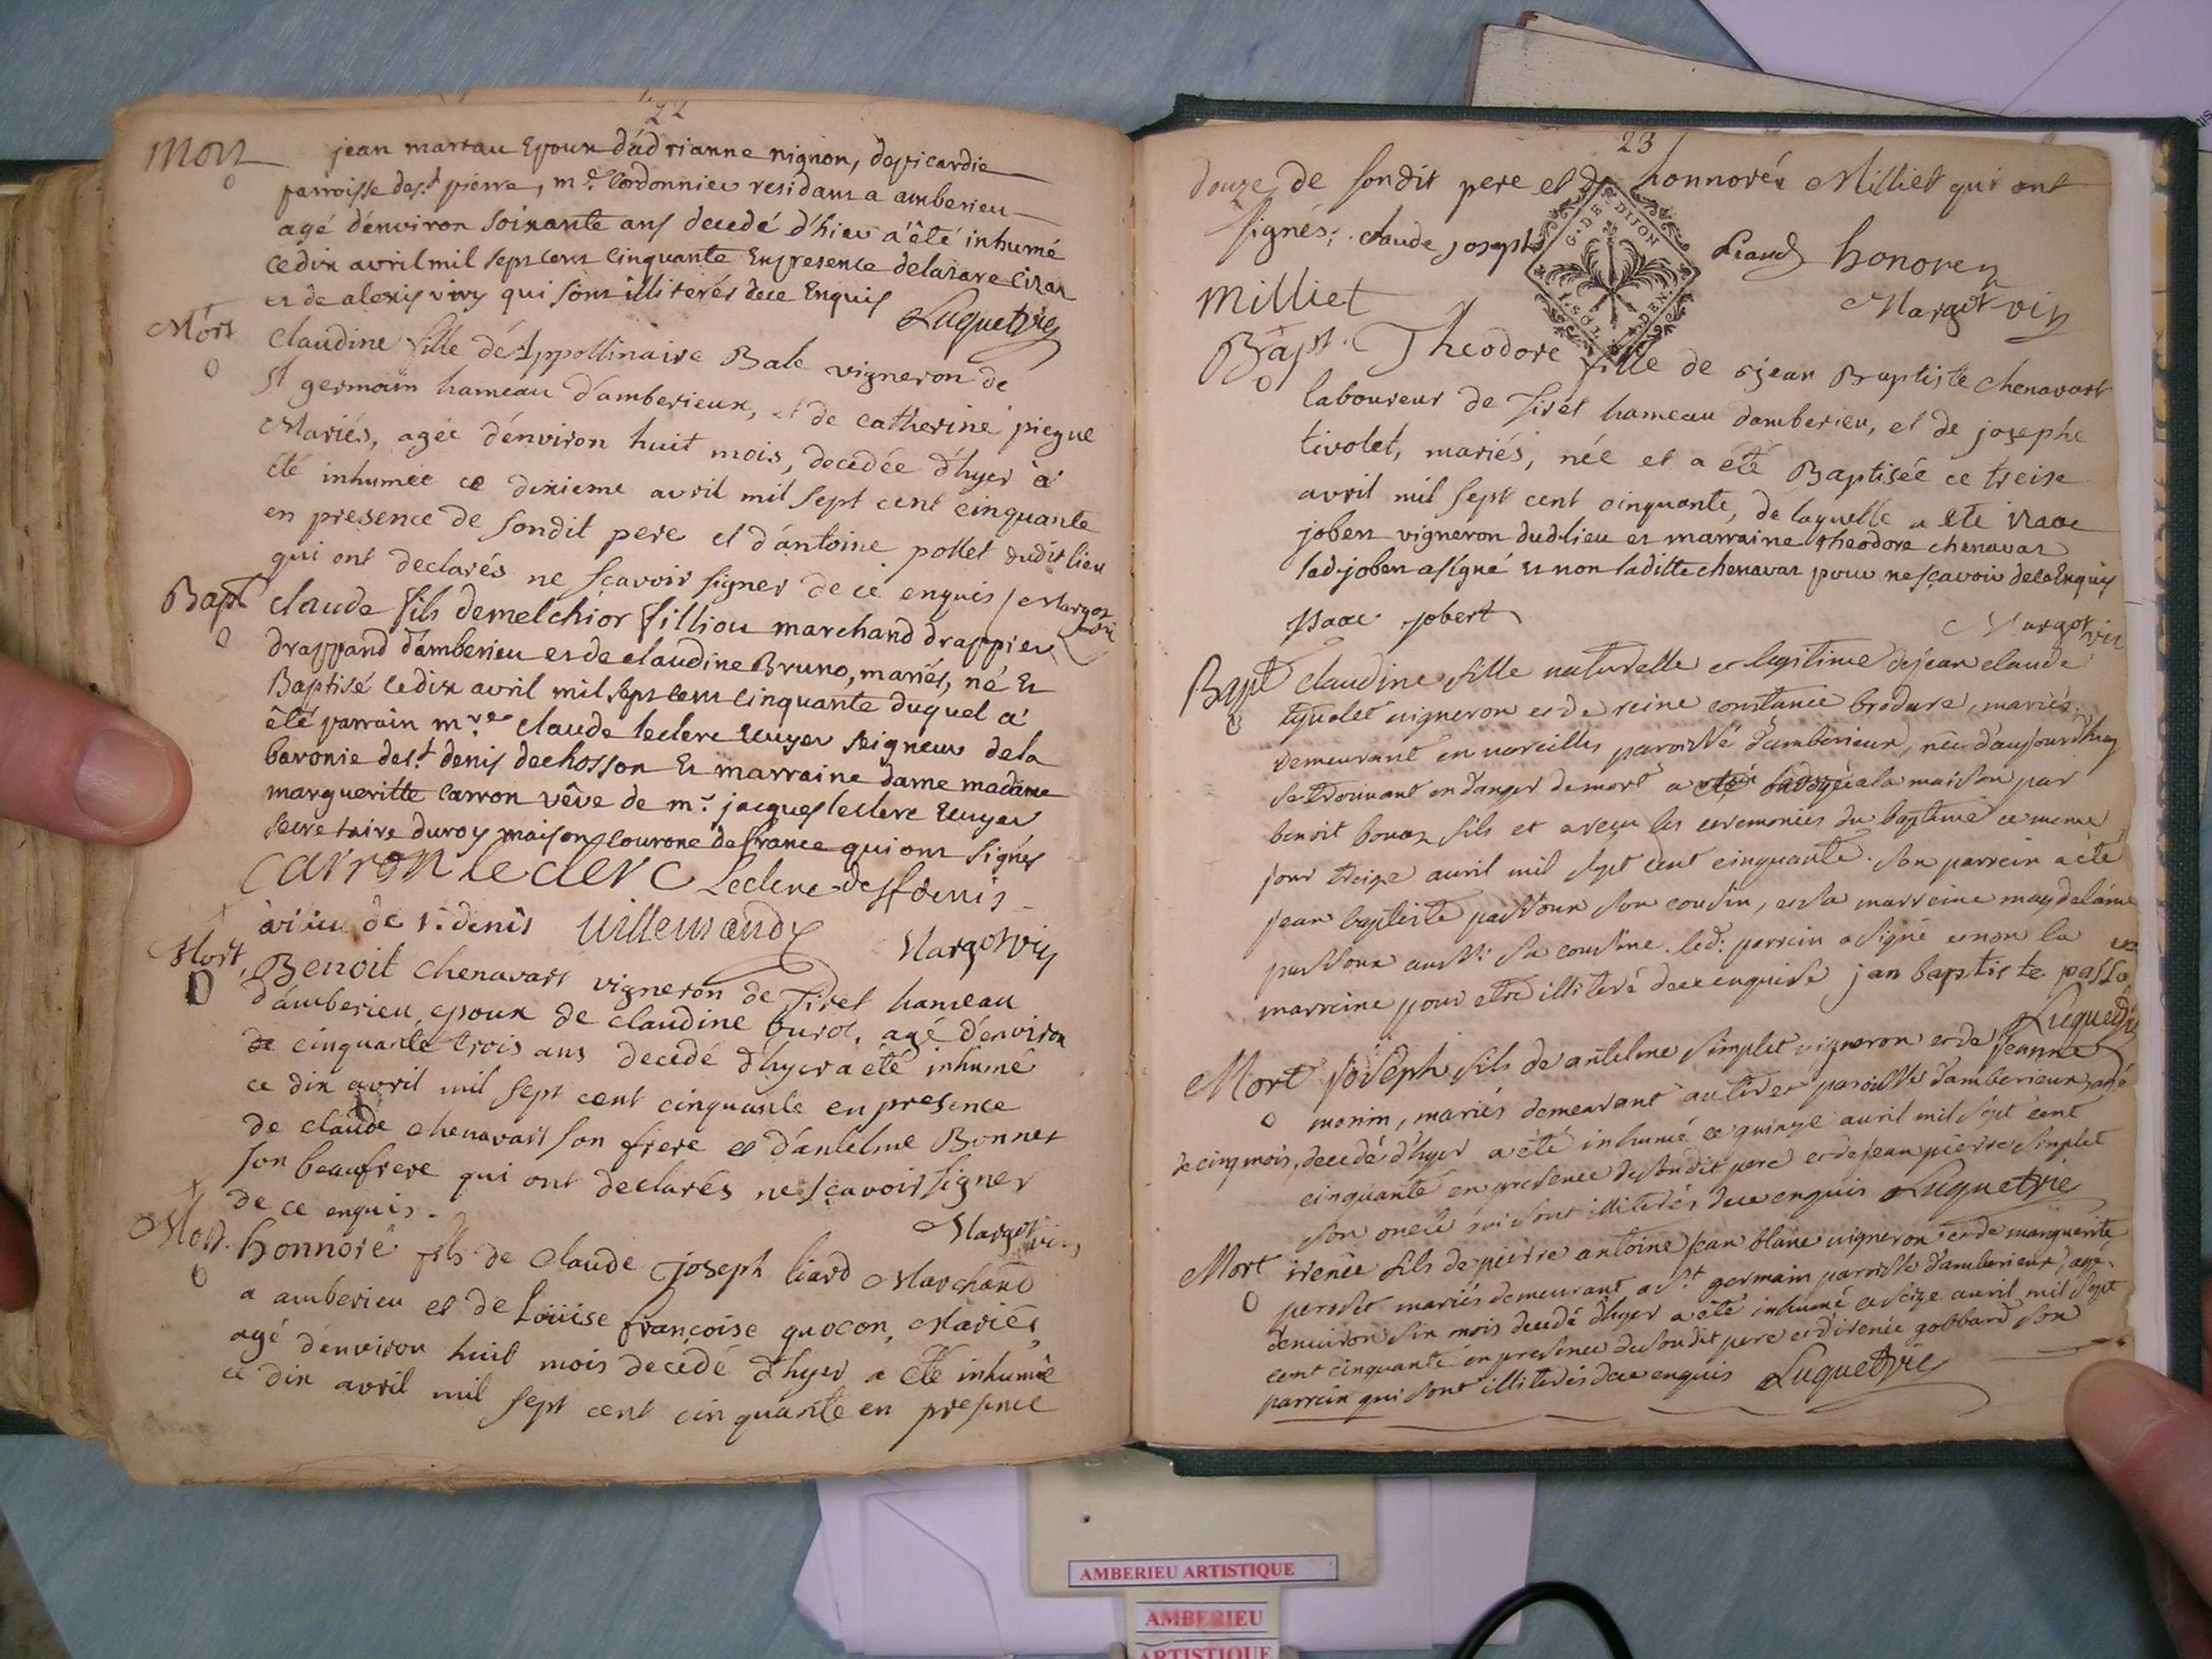 22
Mort jean martau Epoux d'adrianne nignon, de picardie
parroisse de st pierre, me Cordonnier residant a amberieu
agé d'environ soixante ans decedé d'hier a été inhumé
ce dix avril mil sept cent cinquante En presence de lazare
et de alexis viny qui sont illiterés de ce Enquis Luquet vic
Mort Claudine fille de Appollinaire Bale vigneron de
st germain hameau d'amberieux, et de catherine piegue
Mariés, agée d'environ huit mois, decedée d'hyer a
été inhumée ce dixieme avril mil sept cent cinquante
en presence de sondit pere et d'antoine pollet dudit lieu
qui ont declarés ne sçavoir signer de ce enquis / Margot vic
Bapt claude fils de melchior filliou marchand drappier
drappand d'amberieu et de claudine Bruno, mariés, né Et
Baptisé ce dix avril mil sept cent cinquante duquel a
été parrain mre claude leclerc Ecuyer seigneur de la
baronie de st denis de chosson Et marraine dame madame
margueritte carron vêve de mr jacques leclerc Ecuyer
secretaire du roy maison courone de france qui ont signés
Carron leclerc Leclerc de st denis
de st. denis Villemandy Margot vic
Mort, Benoit chenavart vigneron de Tiret hameau
d'amberieu, epoux de claudine burot, agé d'environ
de cinquante trois ans decedé d'hyer a été inhumé
ce dix avril mil sept cent cinquante en presence
de claude chenavart son frere et d'antelme Bonnet
son beaufrere qui ont declarés ne sçavoir signer
de ce enquis. Margot vic
Mort. honnoré fils de Claude joseph liard Marchand
a amberieu et de Louise françoise quocon, Mariés,
agé d'environ huit mois decedé d'hyer a été inhumé
ce dix avril mil sept cent cinquante en presence
23
douze de sondit pere et honnoré Milliet qui ont
signés; claude joseph Liand honoren
Milliet Margot vic
G. DE DIJON
SOL DEN.
Bapt. Theodore fille de sr jean Baptiste chenavart
laboureur de Tiret hameau d'amberieu, et de josephe
tivolet, mariés, née et a été Baptisée ce treise
avril mil sept cent cinquante, de laquelle a ete izaac
jobert vigneron dud. lieu et marraine theodore chenavar
lad. jobert a signé Et non laditte chenavar pour ne sçavoir de ce Enquis
Isaac jobert Margot vic
Bapt claudine fille naturelle et legitime de jean claude
vigneron et de reine constance brodure, mariés
demeurant en vareilles paroisse d'amberieux, née d'aujourd'huy
se trouvant en danger de mort a été ondoyée a la maison par
benoit fils et a reçu les ceremonies du baptême ce meme
jour treize avril mil sept cent cinquante. son parrein a été
jean baptiste passour son cousin, et sa marreine magdelaine
passour aussi sa cousine. led: parrein a signé et non la
marreine pour etre illiteré de ce enquise jan baptiste passo
Luquet vic
Mort joseph fils de antelme simplet vigneron et de jeanne
monin, mariés demeurant au tiret paroisse d'amberieux, agé
de cinq mois, decedé d'hyer a été inhumé ce quinze avril mil sept cent
cinquante en presence de sondit pere et de jean pierre simplet
son oncle qui sont illiterés de ce enquis Luquet vic
Mort irenée fils de pierre antoine jean blanc vigneron et de marguerite
perosset mariés demeurant a st germain paroisse d'amberieux, agé
d'environ six mois decedé d'hyer a été inhumé ce seize avril mil sept
cent cinquante en presence de sondit pere et d'irenée gobbard son
parrein qui sont illiterés de ce enquis Luquet vic
AMBERIEU ARTISTIQUE
AMBERIEU
ARTISTIQUE